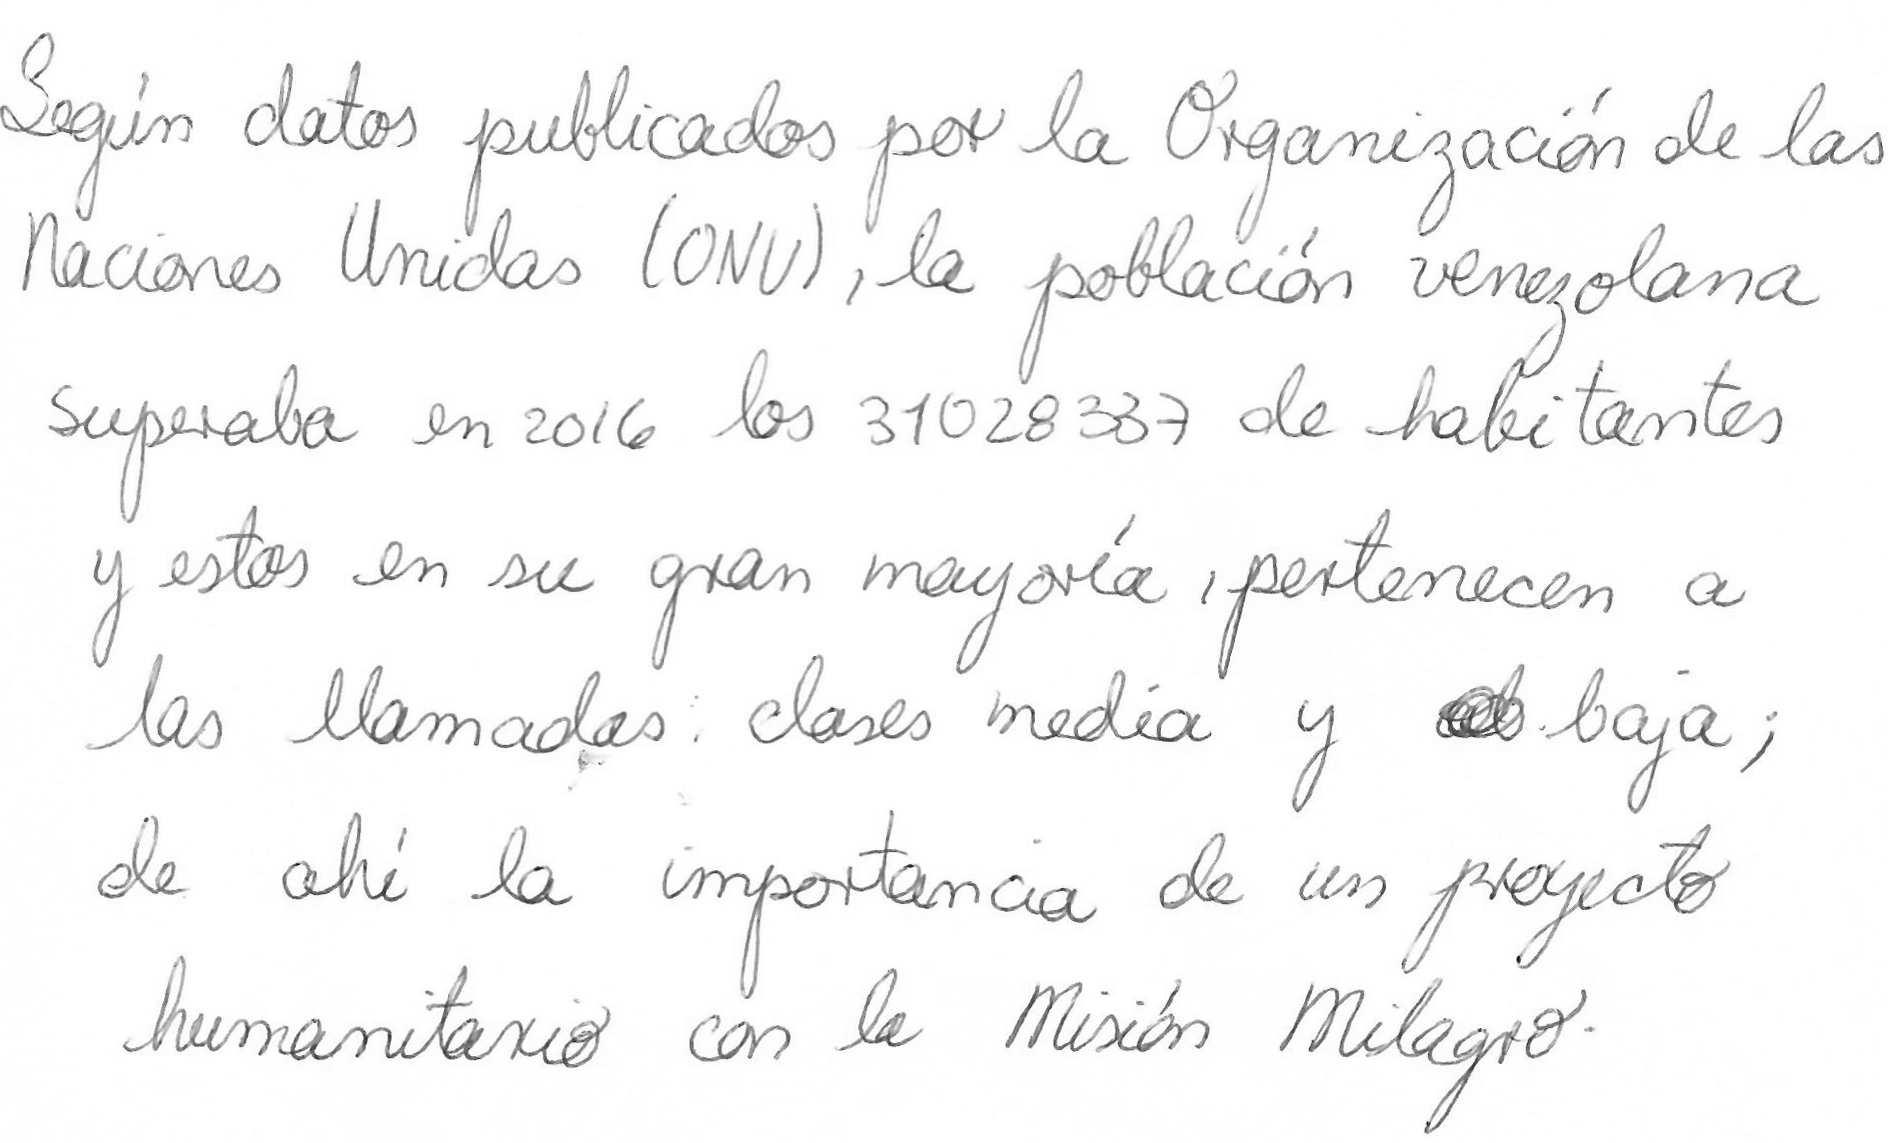 Según datos publicados por la Organización de las
Naciones Unidas (ONU), la población venezolana
superaba en 2016 los 31028337 de habitantes
y estos en su gran mayoría, pertenecen a
las llamadas: clases media y baja;
de ahí la importancia de un proyecto
humanitario con la Misión Milagro.